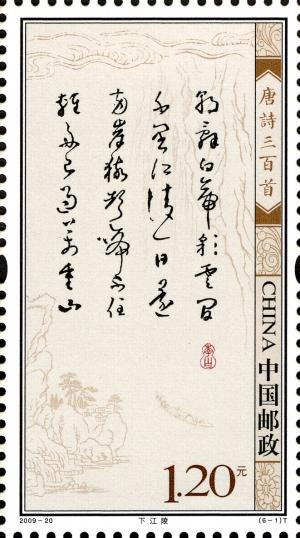 朝辭白帝彩雲間
千里江陵一日還
兩岸猿聲啼不住
輕舟已過萬重山
唐詩三百首
CHINA 中国邮政
1.20元
2009-20
下江陵
(6-1)T